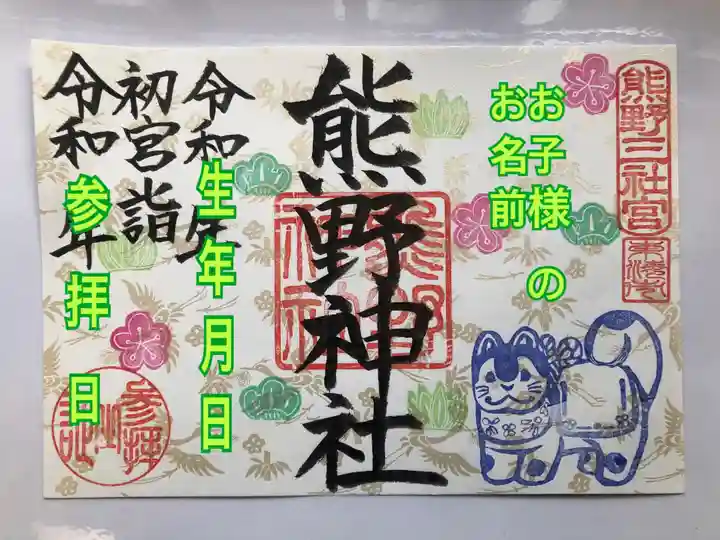 熊野三社宮
東海市
お子様 の
お名前
熊野神社
熊野
神社
令和 年
生年月日
初宮詣
令和 年
参拝日
参拝
之証